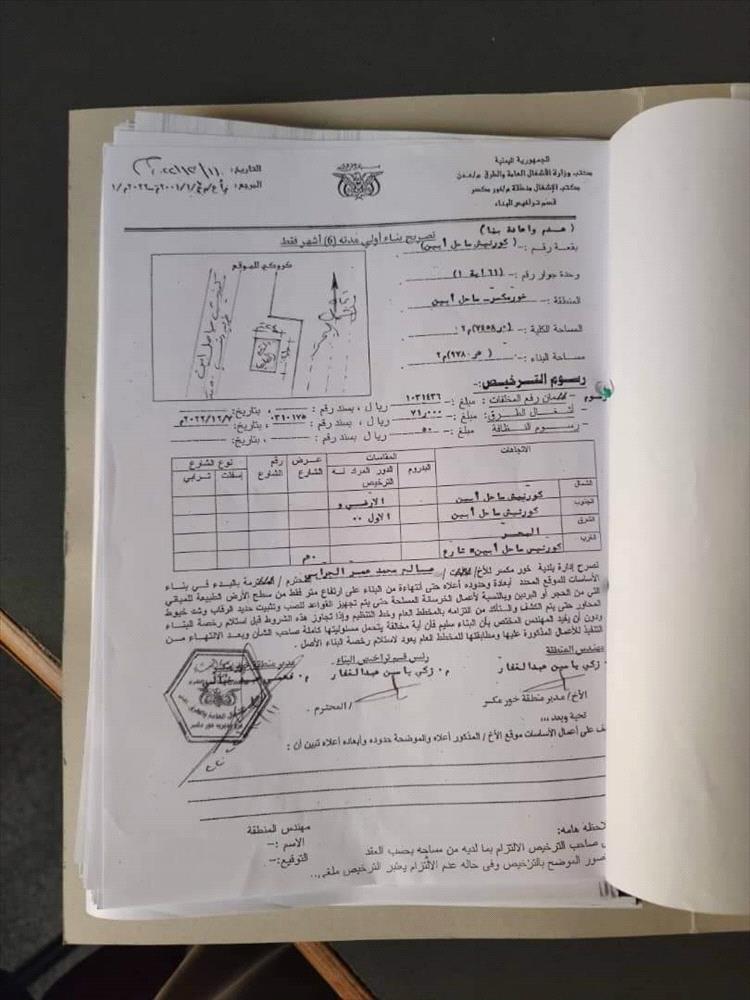 الجمهورية اليمنية
مكتب وزارة الأشغال العامة والطرق م/عدن
مكتب الإشغال منطقة م/خور مكسر
قسم تراخيص البناء
التاريخ:
المرجع:
( هدم وإعادة بناء )
تصريح بناء أولي مدته (6) أشهر فقط
بقعة رقم :- ( كورنيش ساحل أبين)
وحدة جوار رقم :-
المنطقة :- خورمكسر - ساحل أبين
المساحة الكلية :-
مساحة البناء :-
كروكي للموقع
رسوم الترخيص:-
رسوم - ضمان رفع المخلفات : مبلغ :- ١٠٣١٤٣٦ ريال ، بسند رقم : ، بتاريخ:
- أشغال الطرق: مبلغ :- ٧١٠٠٠ ريال ، بسند رقم : ٠٣١٠١٧٥ ، بتاريخ: ٢٠٢٢/١٢/٧م
- رسوم النظافة مبلغ :- ٥٠ ريال بسند رقم : ، بتاريخ:
الاتجاهات المقاسات عرض الشارع رقم الشارع نوع الشارع
البدروم الدور المراد له الترخيص إسفلت ترابي
الشمال كورنيش ساحل أبين الارضي و
الجنوب كورنيش ساحل أبين الاول
الشرق البحر
الغرب كورنيش ساحل أبين شارع
تصرح إدارة بلدية خور مكسر للأخ/ صالح محمد عمر المحترم / الملتزمة بالبدء في بناء
الأساسات للموقع المحدد أبعادة وحدوده أعلاه حتى أنتهاءة من البناء على ارتفاع متر فقط من سطح الأرض الطبيعة للمباني
التي من الحجر أو البردين وبالنسبة لأعمال الخرسانة المسلحة حتى يتم تجهيز القواعد للصب وتثبيت حديد الرقاب وشد خيوط
المحاور حتى يتم الكشف والتأكد من التزامه بالمخطط العام وخط التنظيم وإذا تجاوز هذه الشروط قبل استلام رخصة البناء
ودون أن يفيد المهندس المختص بأن البناء سليم فأن أية مخالفة يتحمل مسئوليتها كاملة صاحب الشأن وبعد الانتهاء من
تنفيذ للأعمال المذكورة عليها ومطابقتها للمخطط العام يعود لاستلام رخصة البناء الأصل .
مهندس المنطقة رئيس قسم تراخيص البناء مدير منطقة خور مكسر
زكي ياسين عبدالغفار م. زكي ياسين عبدالغفار
الأخ/ مدير منطقة خور مكسر / المحترم .
تحية وبعد ,,,
على أعمال الأساسات موقع الأخ / المذكور أعلاه والموضحة حدوده وأبعاده أعلاه تبين أن :
مهندس المنطقة
الاسم :-
التوقيع:-
هامه:
صاحب الترخيص الالتزام بما لديه من مساحه بحسب العقد
الموضح بالترخيص وفي حاله عدم الالتزام يعتبر الترخيص ملغي..